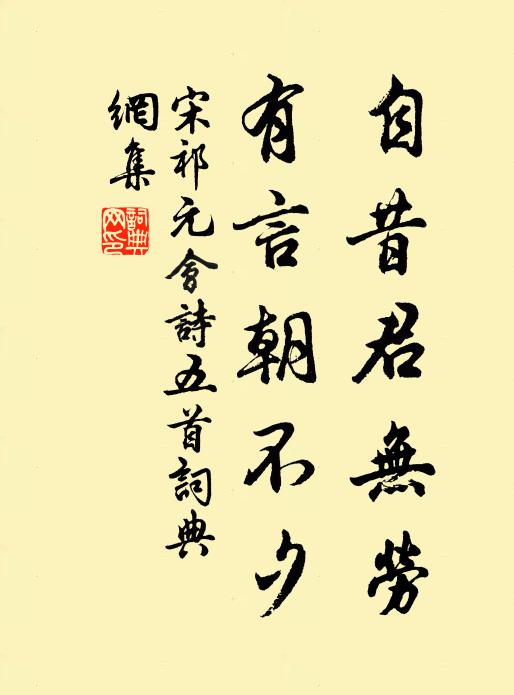 自昔君無勞
有言朝不夕
宋祁元會詩五首詞典
網集
詞典
网印